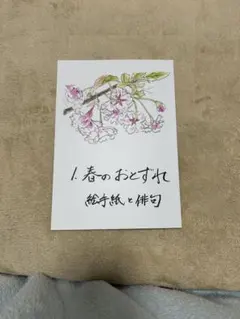 1.春のおとずれ
絵手紙と俳句